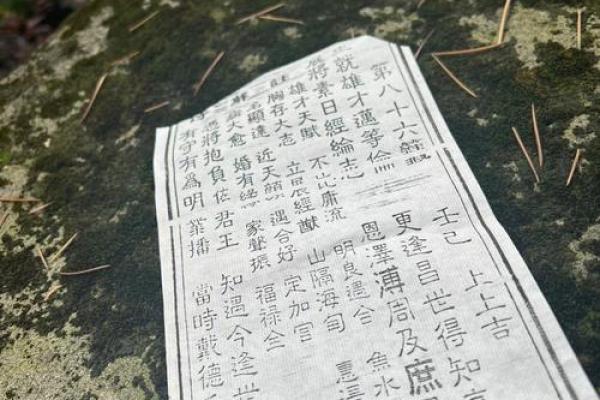 第八十六籤 壬己 上上吉
就雄才邁等倫 更逢昌世得知
展將素日經綸志 恩澤溥周及庶
註
雄才天賦 不比庸流 明良遇合 魚水
胸存大志 立展經猷 山隔海甸 惠
名顯達 近天顔 遇合好 定加官
病大愈 婚有緣 家聲振 福祿全
解
憑將抱負佐君王 知遇今逢世
有守有爲明業播 當時戴德